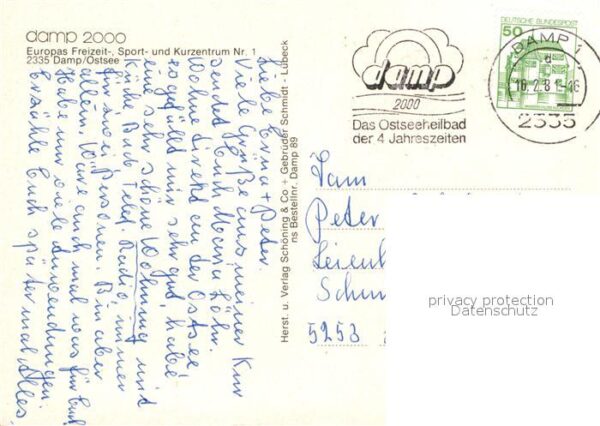 damp 2000
Europas Freizeit-, Sport- und Kurzentrum Nr. 1
2335 Damp/Ostsee
Liebe Erna + Peter.
Viele Grüße aus meiner Kur
sendet Euch Mama
Wohne direkt an der Ostsee
es gefällt mir sehr gut, habe
eine sehr schöne Wohnung mit
Küche Bad Telef. Radio immer
für zwei Personen. Bin aber
allein. Wäre auch mal was für Euch
Habe nur viele Anwendungen.
Erzähle Euch später mal alles
Herst. u. Verlag Schöning & Co + Gebrüder Schmidt - Lübeck
ns Bestellnr. Damp 89
damp
2000
Das Ostseeheilbad
der 4 Jahreszeiten
DEUTSCHE BUNDESPOST
50
DAMP 1
d
2335
Fam
Peter
5253
privacy protection
Datenschutz